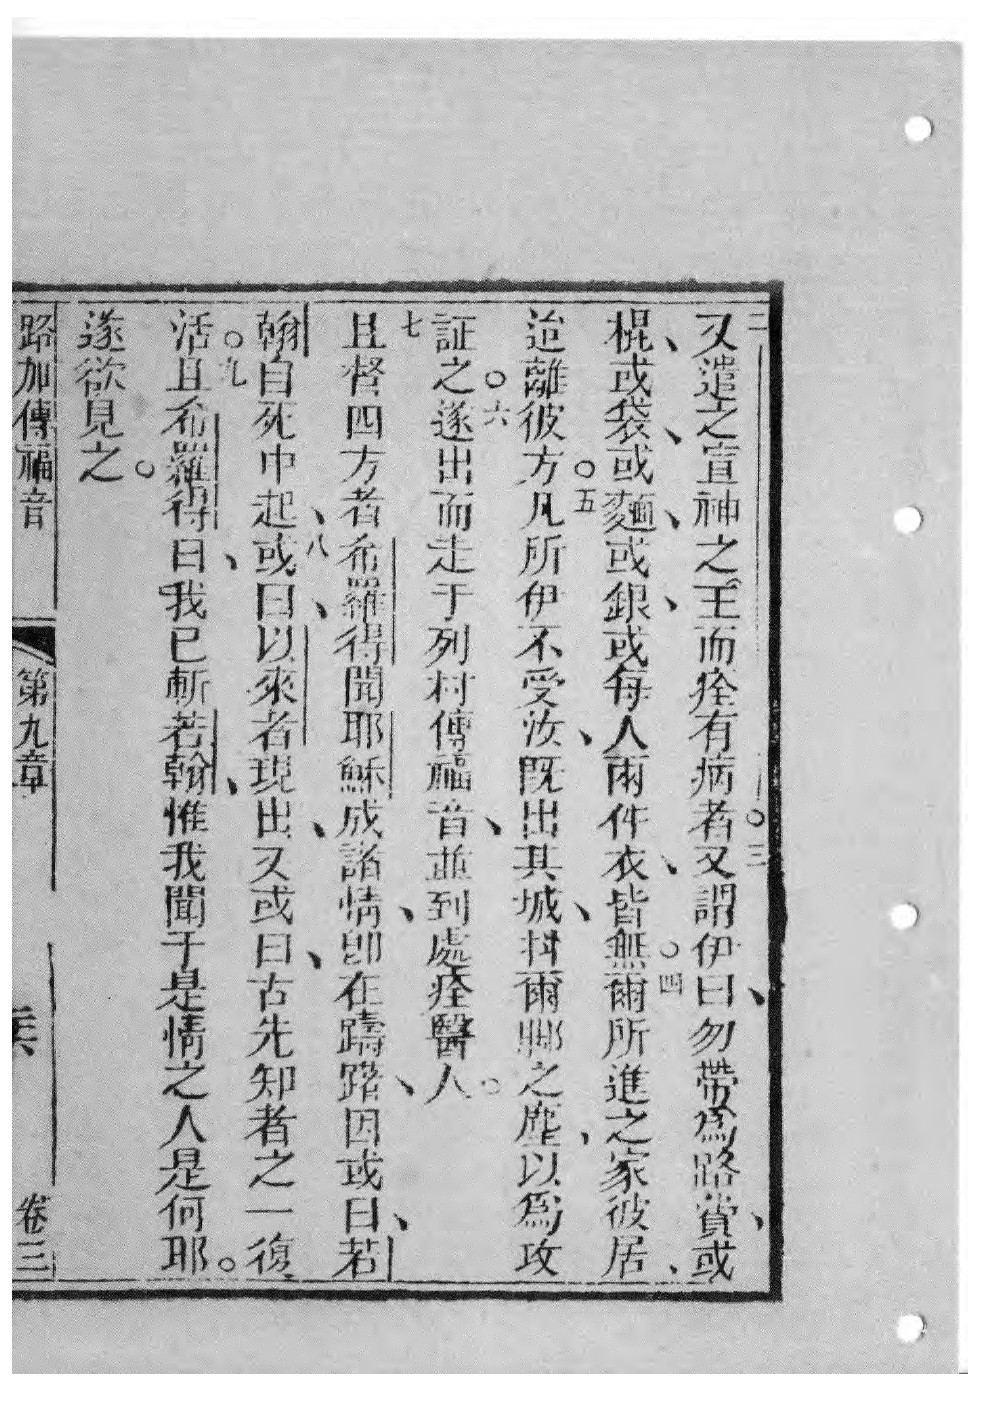 二又遣之宣神之王而痊有病者。三又謂伊曰、勿帶為路賞、或
棍、或袋、或麵、或銀、或每人兩件衣、皆無。四爾所進之家、彼居、
迨離彼方。五凡所伊不受汝、既出其城、抖爾腳之塵、以為攻
証之。六遂出而走于列村傳福音、並到處痊醫人。
七且督四方者希羅得聞耶穌成諸情、即在躊躇、因或曰、若
翰自死中起、八或曰、以來者現出、又或曰、古先知者之一復
活。九且希羅得曰、我已斬若翰、惟我聞于是情之人是何耶。
遂欲見之。
路加傳福音 第九章 卷三